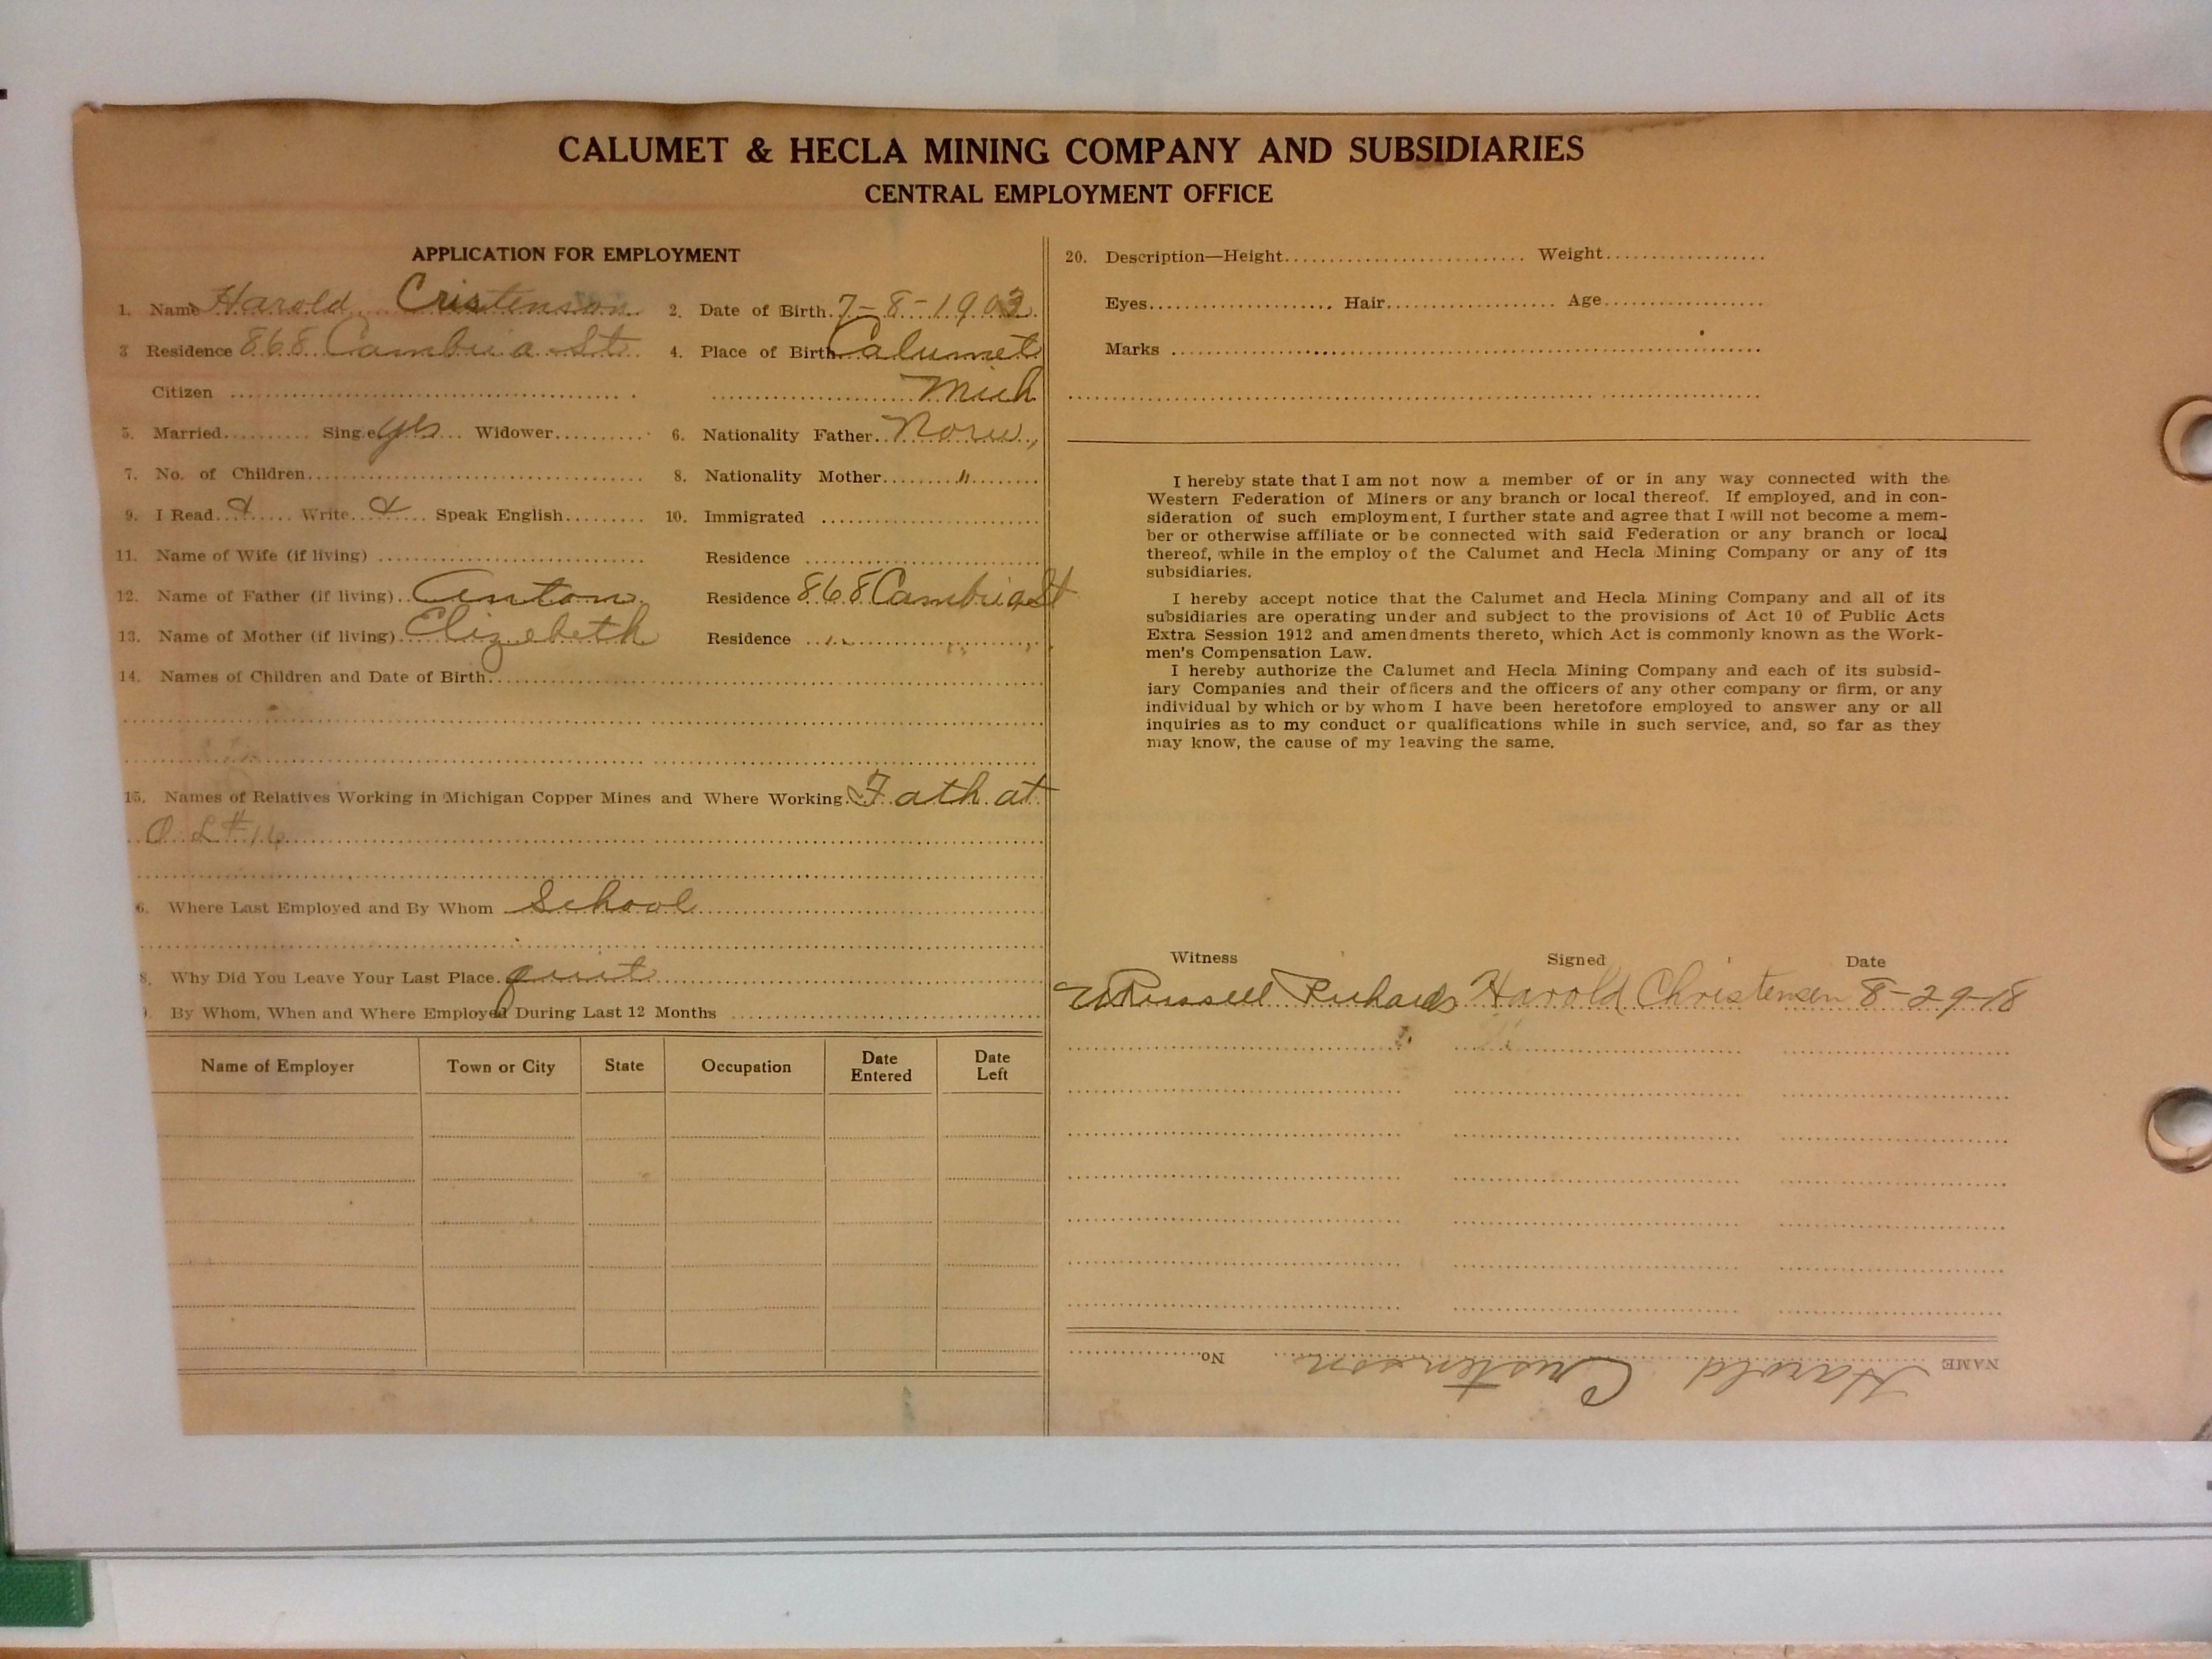 CALUMET & HECLA MINING COMPANY AND SUBSIDIARIES
CENTRAL EMPLOYMENT OFFICE
APPLICATION FOR EMPLOYMENT
1. Name Harold Cristenson 2. Date of Birth 7-8-1903
3 Residence 868 Cambria St. 4. Place of Birth Calumet
Citizen Mich
5. Married Single yes Widower 6. Nationality Father Norw,
7. No. of Children 8. Nationality Mother "
9. I Read Write Speak English 10. Immigrated
11. Name of Wife (if living) Residence
12. Name of Father (if living) Anton Residence 868 Cambria St
13. Name of Mother (if living) Elizebeth Residence " " "
14. Names of Children and Date of Birth
15. Names of Relatives Working in Michigan Copper Mines and Where Working. Fath. at
O. L #16
6. Where Last Employed and By Whom School
8. Why Did You Leave Your Last Place. quit
By Whom, When and Where Employed During Last 12 Months
Name of Employer Town or City State Occupation Date Entered Date Left
20. Description—Height Weight
Eyes Hair Age
Marks
I hereby state that I am not now a member of or in any way connected with the
Western Federation of Miners or any branch or local thereof. If employed, and in con-
sideration of such employment, I further state and agree that I will not become a mem-
ber or otherwise affiliate or be connected with said Federation or any branch or local
thereof, while in the employ of the Calumet and Hecla Mining Company or any of its
subsidiaries.
I hereby accept notice that the Calumet and Hecla Mining Company and all of its
subsidiaries are operating under and subject to the provisions of Act 10 of Public Acts
Extra Session 1912 and amendments thereto, which Act is commonly known as the Work-
men's Compensation Law.
I hereby authorize the Calumet and Hecla Mining Company and each of its subsid-
iary Companies and their officers and the officers of any other company or firm, or any
individual by which or by whom I have been heretofore employed to answer any or all
inquiries as to my conduct or qualifications while in such service, and, so far as they
may know, the cause of my leaving the same.
Witness Signed Date
W Russell Richards Harold Christensen 8-29-18
NAME Harold Cristenson No.